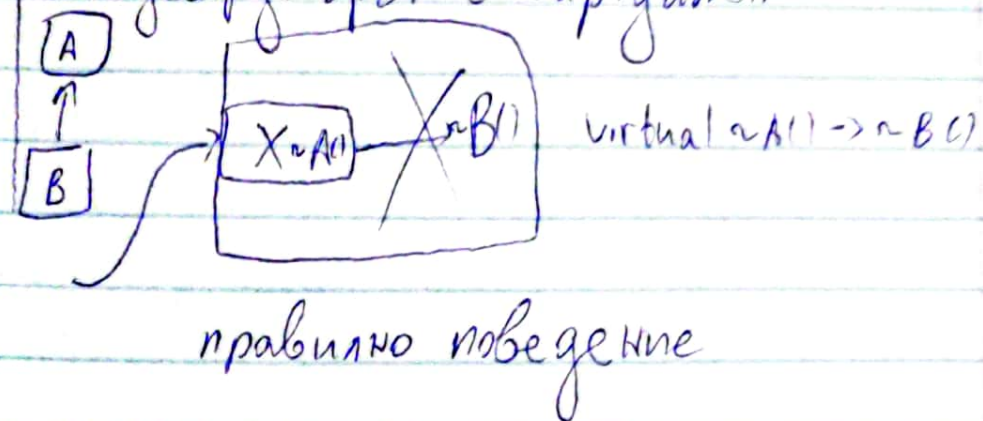 A
X ~A() ~B() virtual ~A() -> ~B()
B
правилно поведение